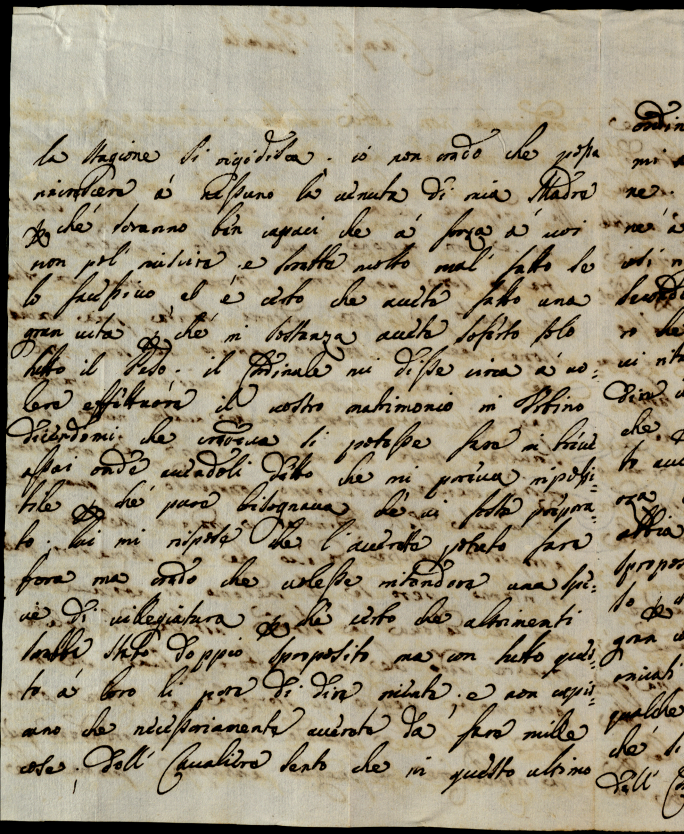 la stagione si rigidisca. io non credo che possa
rincrescere à nessuno la venuta di mia Madre
perché saranno ben capaci che à forza à voi
non pol' e sarebbe molto mal' fatto se
lo facessivo et è certo che avete fatto una
gran vita perché in sostanza avete soferto solo
tutto il Peso. il Cardinale mi disse circa à vo=
lere effettuare il vostro matrimonio in Urbino
dicendomi che credeva si potesse fare in breve
assai onde avendoli detto che mi pareva
perché pure bisognava che vi foste prepara=
to. lui mi rispose che l'avereste potuto fare
fora ma credo che volesse intendere una spe=
cie di villegiatura perché certo che altrimenti
sarebbe stato doppio sproposito ma con tutto ques=
to à loro li pare di dire niente, e non capis=
cano che necessariamente averete dà fare mille
cose. Dell' Cavaliere sento che in questo ultimo
ordin
mi
ne.
ne à
ro che
dire
che
to
oza
abbia
spropos
so
gran
qualche
che si
dell'